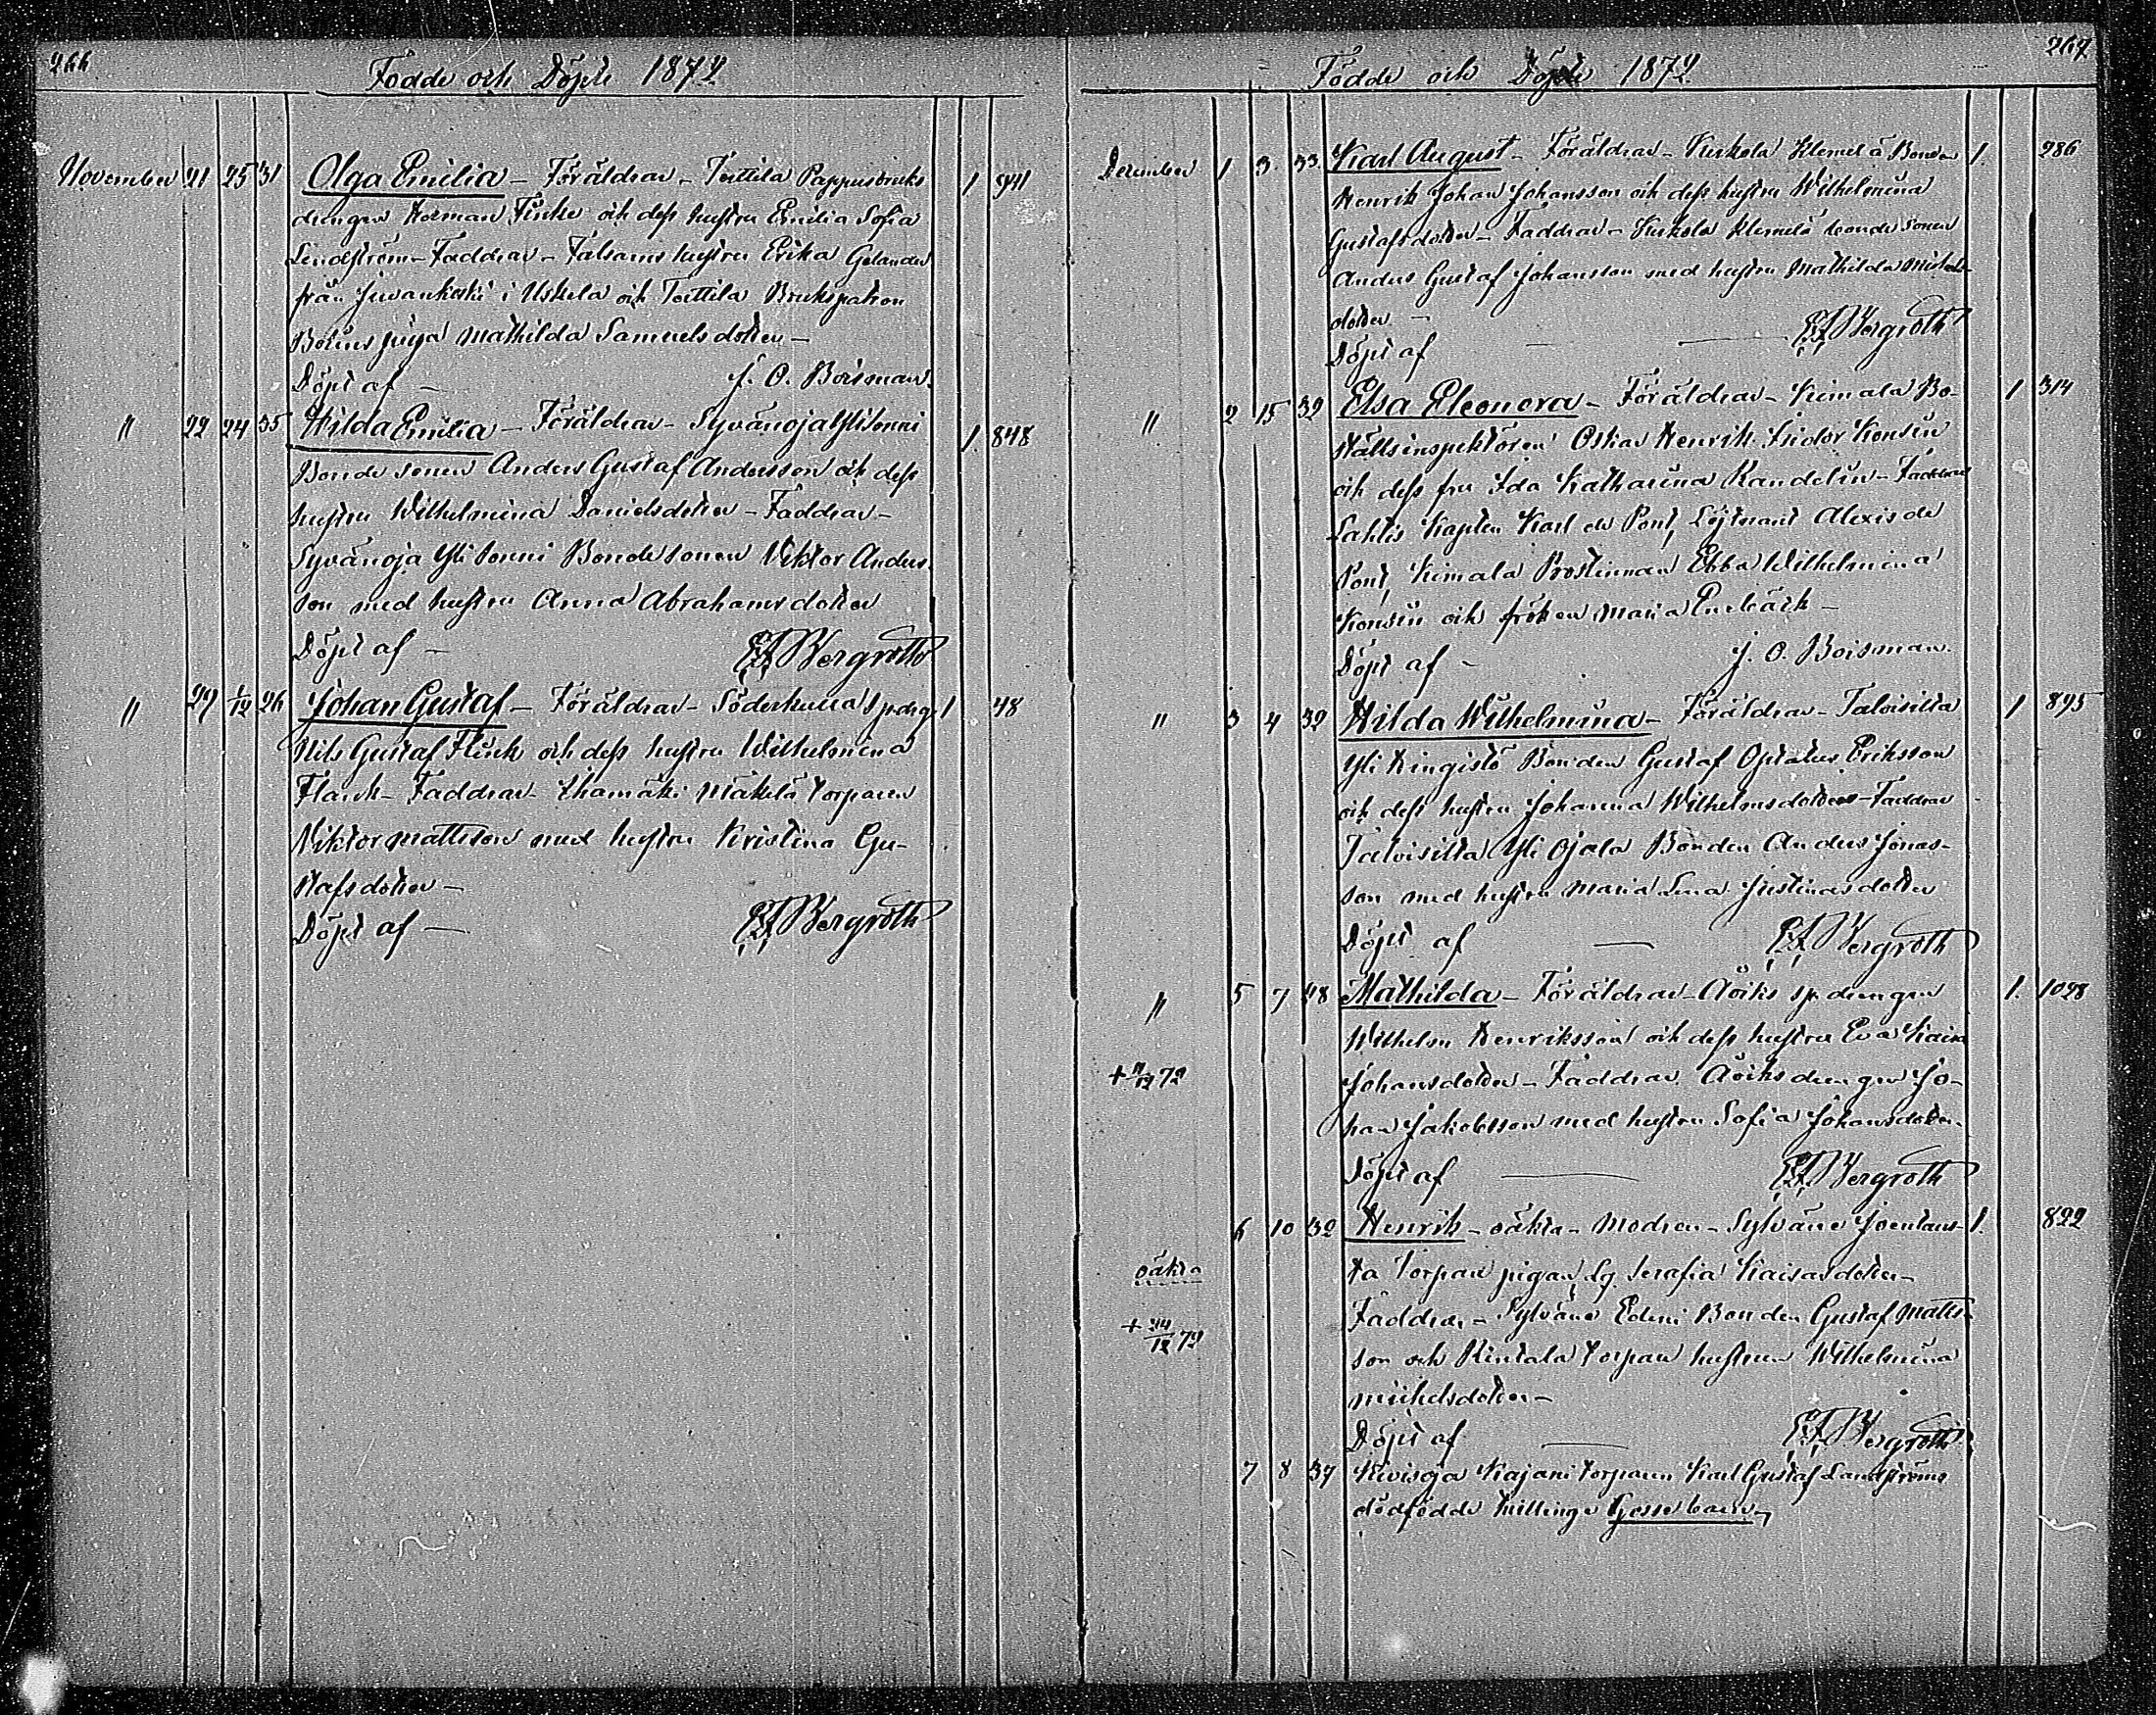 266
Födde och Döpte 1872
November 21 25 31 Olga Emilia - Föräldrar - Torttila Pappersbruks 1. 841
drengen Herman Finke och dess hustru Emilia Sofia
Lindström - Faddrar - Fältsams hustru Erika Gelander
från Juvankoski i Uskela och Torttila Brukspatron
piga Mathilda Samuelsdotter -
Döpt af - J. O. Boisman.
" 22 24 35 Hilda Emilia - Föräldrar - Syvänoja Ylitonni 1. 848
Bonde sonen Anders Gustaf Andersson och dess
hustru Wilhelmina Danielsdotter - Faddrar -
Syvänoja Yli Sonni Bondesonen Viktor Anders
son med hustru Anna Abrahamsdotter
Döpt af - EF Bergroth
" 29 1/12 26 Johan Gustaf - Föräldrar - Söderkulla Spdrg. 1 48
Nils Gustaf Flink och dess hustru Wilhelmina
Flinck - Faddrar - Ihamäki Mäkelä torparen
Viktor Mattsson med hustru Kristina Gu-
stafsdotter -
Döpt af - EF Bergroth
267
Födde och Döpte 1872
December 1 3. 33. Karl August - Föräldrar - Kerkola Klemelä Bonden 1. 286
Henrik Johan Johansson och dess hustru Wilhelmina
Gustafsdotter - Faddrar - Kerkola Klemelä bonde sonen
Anders Gustaf Johansson med hustru Mathilda Mickels-
dotter -
Döpt af EF Bergroth
" 2 15 32 Elsa Eleonora - Föräldrar - Keimala Bo- 1 314
ställsinspektören Oskar Henrik Isidor Konsin
och dess fru Ida Katharina Randelin - Faddrar
Lahtis Kapten Karl de Pont, Löjtnant Alexis de
Pont, Keimala Prostinnan Ebba Wilhelmina
Konsin och fröken Maria Enebäck -
Döpt af - J. O. Boisman.
" 3 4 32 Hilda Wilhelmina - Föräldrar - Talvisilta 1 895
Yli Kingistö Bonden Gustaf Optatus Eriksson
och dess hustru Johanna Wilhelmsdotter - Faddrar
Talvisilta Yli Ojala Bonden Anders Jonas-
son med hustru Maria Lena Justinasdotter
Döpt af - EF Bergroth
" 5 7 48 Mathilda - Föräldrar - Aöiks sp. drengen 1. 1028
Wilhelm Henriksson och dess hustru Eva Kaisa
+ 11/12 72 Johansdotter - Faddrar Aöiks drengen Jo-
han Jakobsson med hustru Sofia Johansdotter.
Döpt af EF Bergroth
6 10 32 Henrik - oäkta - Modren - Sylväne Joentaus- 1. 822
oäkta ta Torpar pigan Lg. Serafia Kaisasdotter -
+ 24/12 72 Faddrar - Sylväne Edeni Bonden Gustaf Matts-
son och Rintala torpar hustrun Wilhelmina
Michelsdotter -
Döpt af EF Bergroth
7 8 37 Kivisoja Kajani torparen Karl Gustaf Landströms
dödfödde tvillinge Gossebarn,